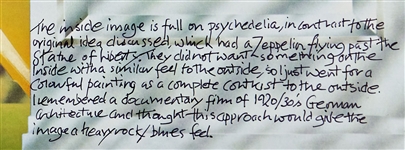 The inside image is full on psychedelia, in contrast to the
original idea discussed, which had a Zeppelin flying past the
statue of liberty. They did not want something on the
Inside with a similar feel to the outside, so I just went for a
colourful painting as a complete contrast to the outside.
I remembered a documentary film of 1920/30's German
architecture and thought this approach would give the
image a heavy rock/blues feel.